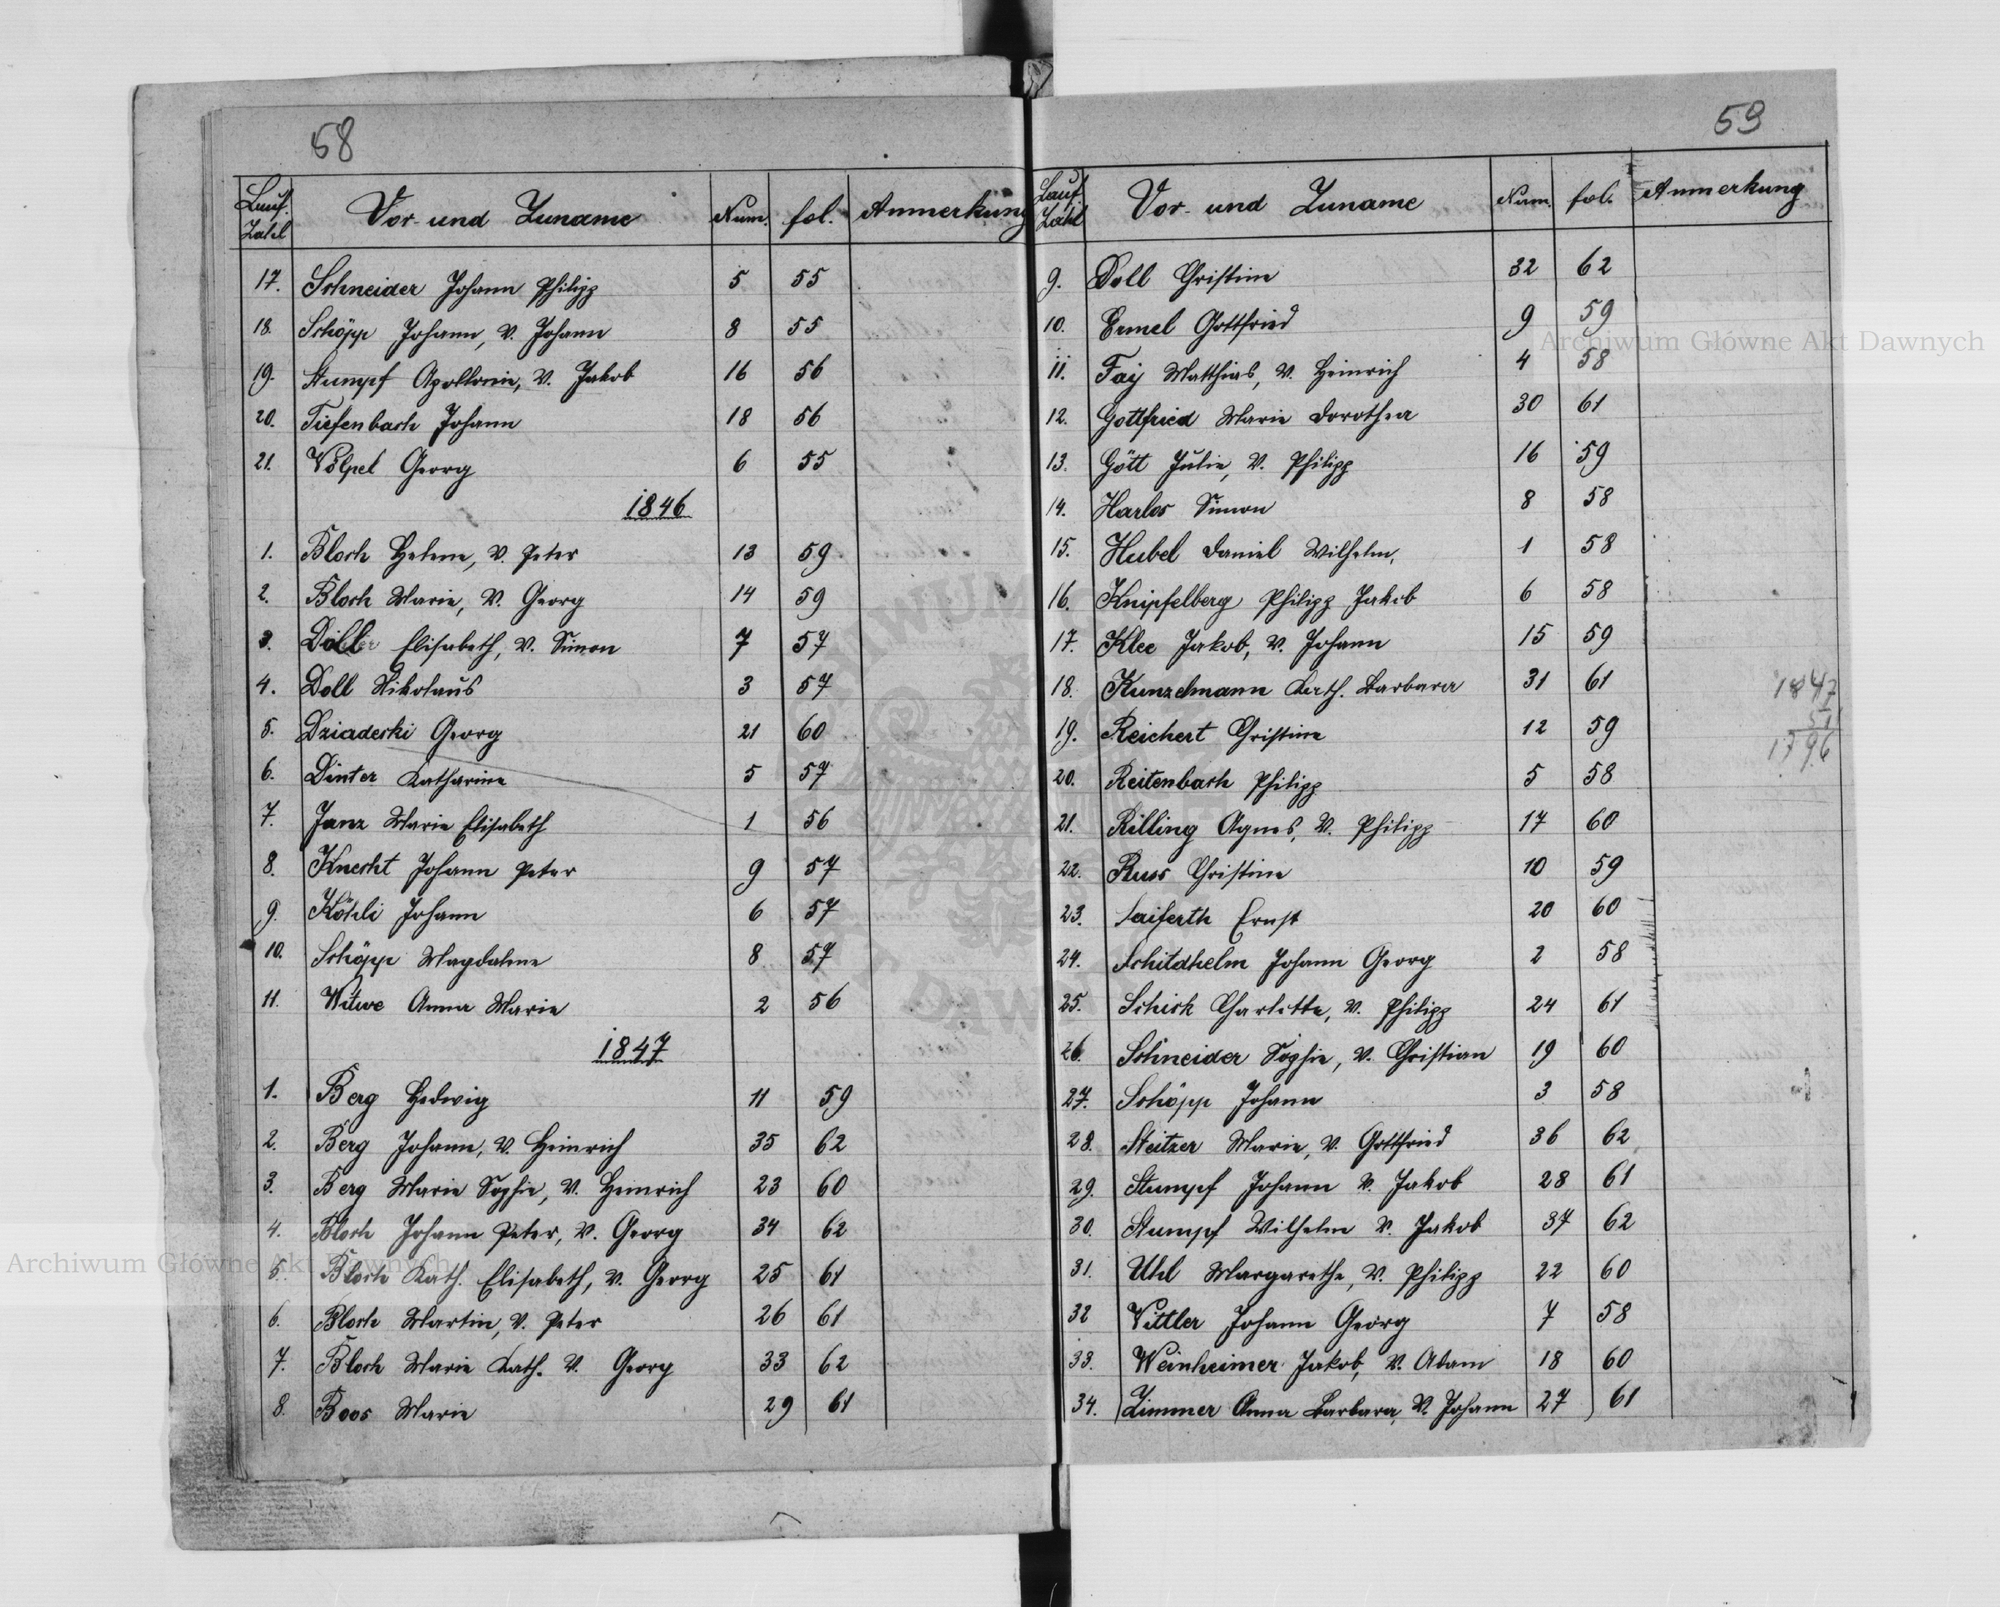 58
Lauf. Zahl Vor- und Zuname Num. fol. Anmerkung
17. Schneider Johann Philipp 5 55
18. Schöpp Johann, v. Johann 8 55
19. Stumpf Apollonia, v. Jakob 16 56
20. Tiefenbach Johann 18 56
21. Völpel Georg 6 55
1846
1. Bloch Helene, v. Peter 13 59
2. Bloch Marie, v. Georg 14 59
3. Elisabeth, v. Simon 7 57
4. Doll Nikolaus 3 57
5. Dziaderski Georg 21 60
6. Dinter Katharina 5 57
7. Janz Marie Elisabeth 1 56
8. Knecht Johann Peter 9 57
9. Köhli Johann 6 57
10. Schöpp Magdalena 8 57
11. Witwe Anna Marie 2 56
1847
1. Berg Hedwig 11 59
2. Berg Johann, v. Heinrich 35 62
3. Berg Marie Sophie, v. Heinrich 23 60
4. Bloch Johann Peter, v. Georg 34 62
5. Bloch Kath. Elisabeth, v. Georg 25 61
6. Bloch Martin, v. Peter 26 61
7. Bloch Marie Kath. v. Georg 33 62
8. Boos Marie 29 61
59
Lauf. Zahl Vor- und Zuname Num. fol. Anmerkung
9. Doll Christine 32 62
10. Ermel Gottfried 9 59
11. Faij Matthias, v. Heinrich 4 58
12. Gottfried Marie Dorothea 30 61
13. Gött Julie, v. Philipp 16 59
14. Harlos Simon 8 58
15. Hubel Daniel Wilhelm. 1 58
16. Knipfelberg Philipp Jakob 6 58
17. Klee Jakob, v. Johann 15 59
18. Kunzelmann Kath. Barbara 31 61
1847
51
1796
19. Reichert Christine 12 59
20. Reitenbach Philipp 5 58
21. Rilling Agnes, v. Philipp 17 60
22. Russ Christine 10 59
23. Saiferth Ernst 20 60
24. Schildhelm Johann Georg 2 58
25. Schick Charlotte, v. Philipp 24 61
26. Schneider Sophie, v. Christian 19 60
27. Schöpp Johann 3 58
28. Steitzer Marie, v. Gottfried 36 62
29. Stumpf Johann v. Jakob 28 61
30. Stumpf Wilhelm v. Jakob 37 62
31. Uhl Margarethe, v. Philipp 22 60
32 Vittler Johann Georg 7 58
33. Weinheimer Jakob, v. Adam 18 60
34. Zimmer Anna Barbara, v. Johann 27 61
Archiwum Główne Akt Dawnych
Archiwum Główne Akt Dawnych